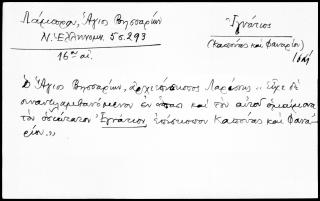 Λάρισσα, Ἅγιος Βησσαρίων
Ν. Ἑλληνομ. 5 σ. 293
16ος αἰ.
Ἰγνάτιος
(Καππούας καὶ Φαναρίου)
Ὁ Ἅγιος Βησσαρίων, ἀρχιεπίσκοπος Λαρίσσης „ εἶχε δὲ
συναντιλαμβανόμενον ἐν ἅπασι καὶ τὸν αὐτοῦ ὁμαίμονα
τὸν ὁσιώτατον Ἰγνάτιον ἐπίσκοπον Καππούας καὶ Φανα-
ρίου."